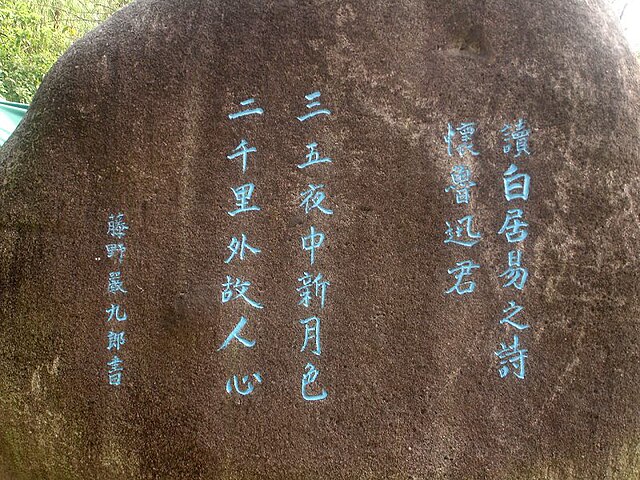 讀白居易之詩
懷魯迅君
三五夜中新月色
二千里外故人心
藤野嚴九郎書